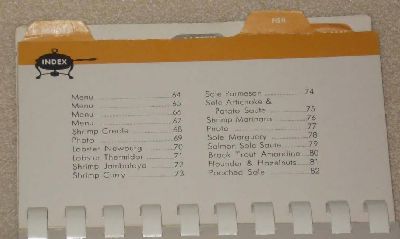 FISH
INDEX
Menu 64
Menu 65
Menu 66
Menu 67
Shrimp Creole 68
Photo 69
Lobster Newburg 70
Lobster Thermidor 71
Shrimp Jambalaya 72
Shrimp Curry 73
Sole Parmesan 74
Sole Artichoke &
Potato Saute 75
Shrimp Marinara 76
Photo 77
Sole Marguery 78
Salmon Solo Saute 79
Brook Trout Amandine 80
Flounder & Hazelnuts 81
Poached Sole 82